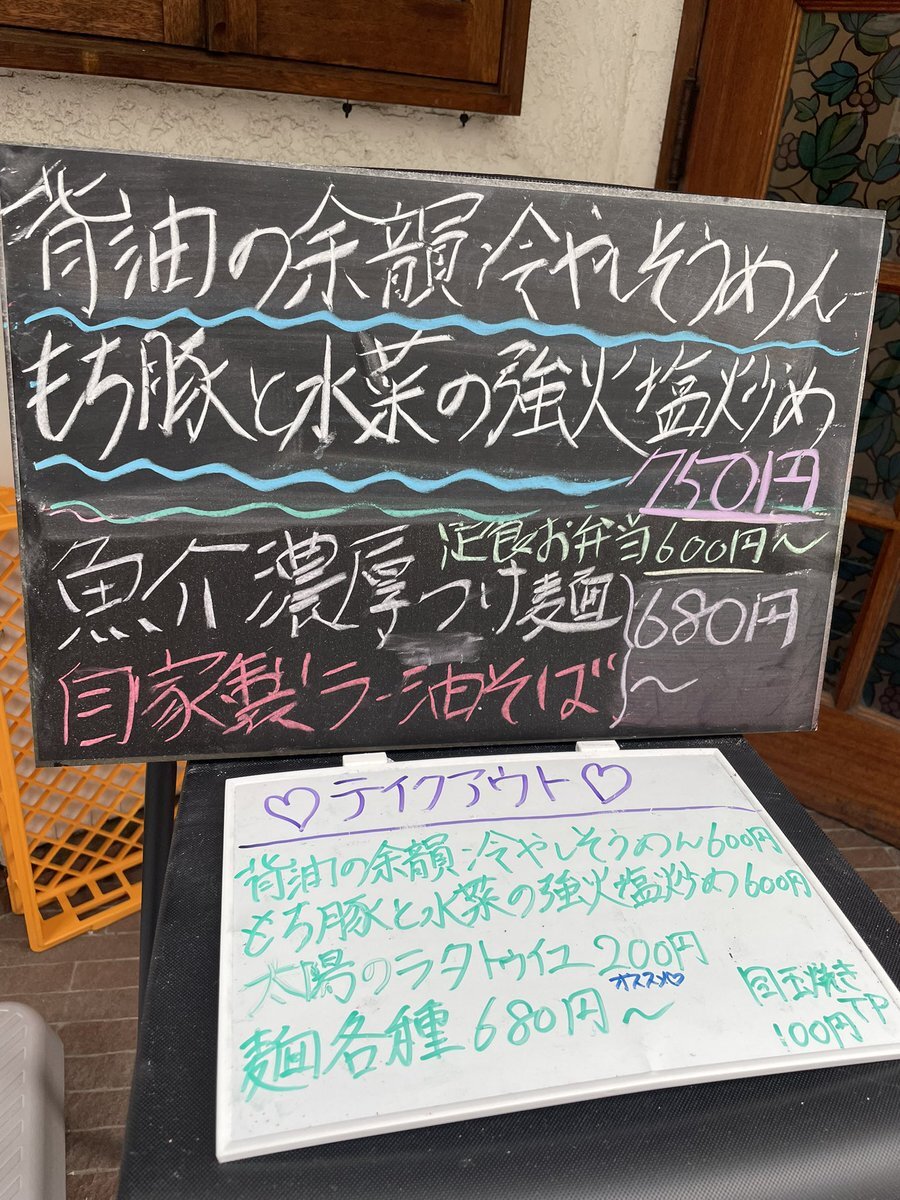 背油の余韻・冷やしそうめん
もち豚と水菜の強火塩炒め
750円
定食お弁当600円〜
魚介濃厚つけ麺
自家製ラー油そば
680円
〜
♡テイクアウト♡
背油の余韻・冷やしそうめん600円
もち豚と水菜の強火塩炒め600円
太陽のラタトゥイユ 200円
オススメ♡
麺各種680円〜
目玉焼き
TP
100円